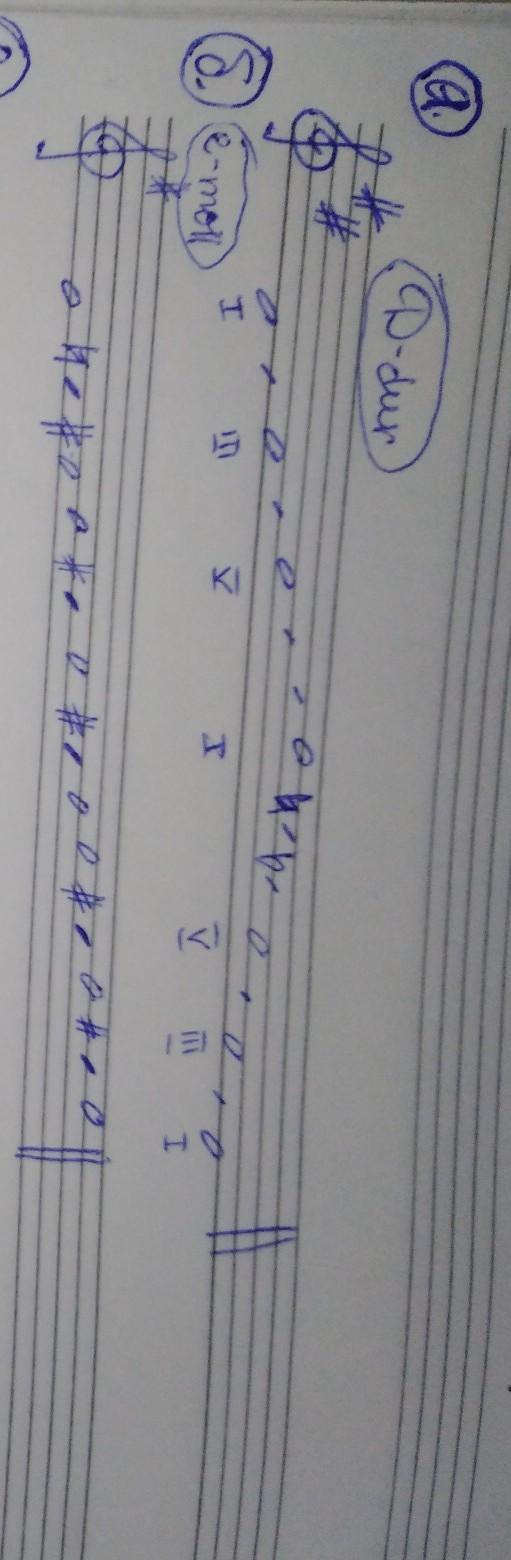 а.
D-dur
I III V I V III I
б.
e-moll